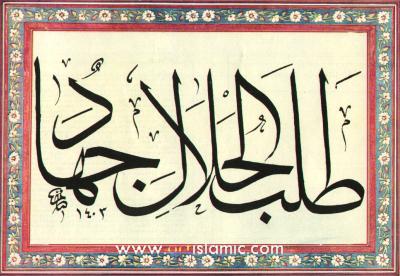 طَلَبُ الْحَلَالِ جِهَادٌ
١٤٠٣
www.artislamic.com